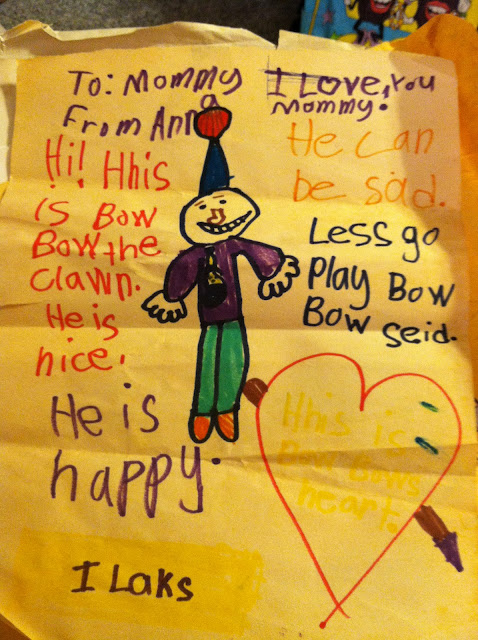 To: Mommy
From Anna
I Love, You
Mommy.
Hi! Hhis
is Bow
Bow the
Clawn.
He is
nice.
He is
happy.
He can
be sad.
Less go
Play Bow
Bow seid.
Hhis is
Bow Bows
heart.
I Laks